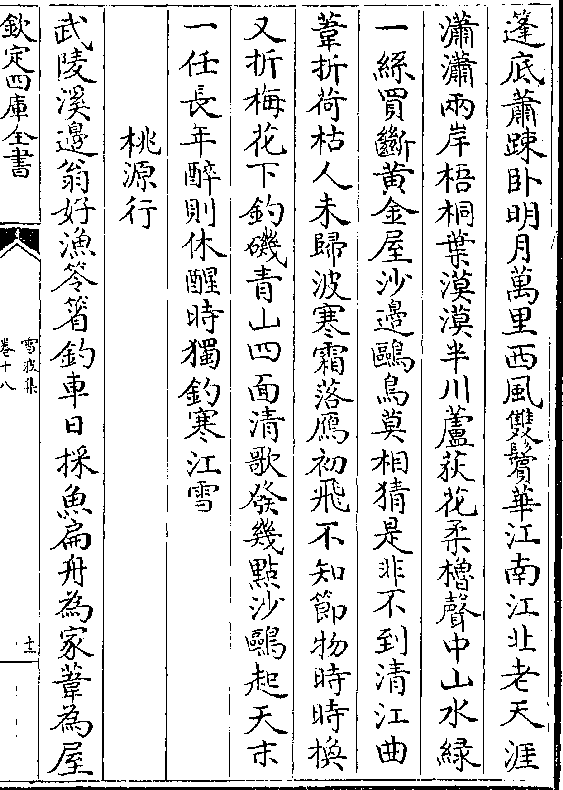 篷底蕭踈卧明月萬里西風雙鬢華江南江北老天涯
瀟瀟兩岸梧桐葉漠漠半川蘆荻花柔櫓聲中山水緑
一絲買斷黄金屋沙邊鷗鳥莫相猜是非不到清江曲
葦折荷枯人未歸波寒霜落鴈初飛不知節物時時換
又折梅花下釣磯青山四面清歌發幾點沙鷗起天末
一任長年醉則休醒時獨釣寒江雪
桃源行
武陵溪邊翁好漁笭箵釣車日採魚扁舟為家葦為屋
欽定四庫全書
雪坡集
卷十八
十二